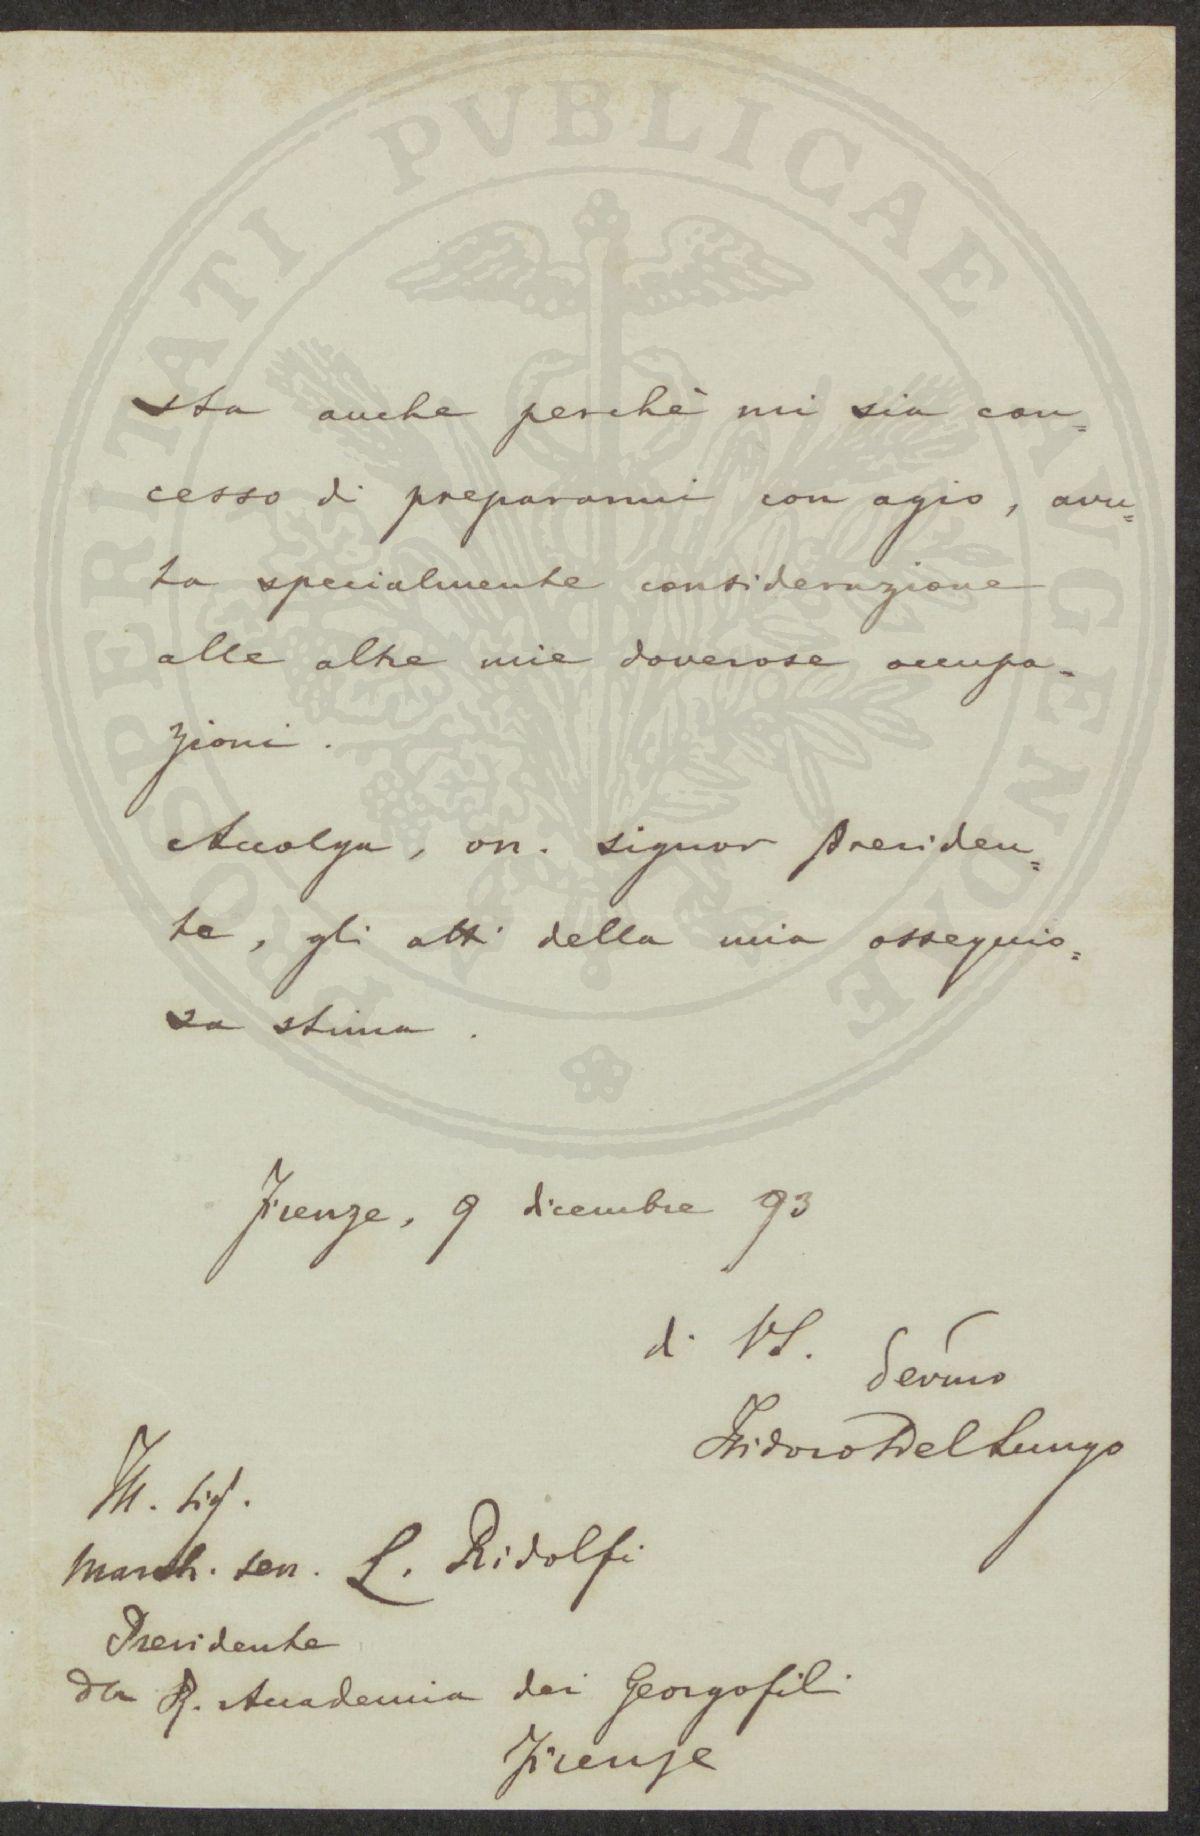 sta anche perchè mi sia con=
cesso di prepararmi con agio, avu=
ta specialmente considerazione
alle altre mie doverose occupa-
zioni.
Accolga, on. signor Presiden=
te, gli atti della mia ossequio=
sa stima.
Firenze, 9 dicembre 93
di VS. devmo
Isidoro Del Lungo
Ill. sig.
march. sen. L. Ridolfi
Presidente
della R. Accademia dei Georgofili
Firenze
PROSPERITATI PVBLICAE AVGENDAE